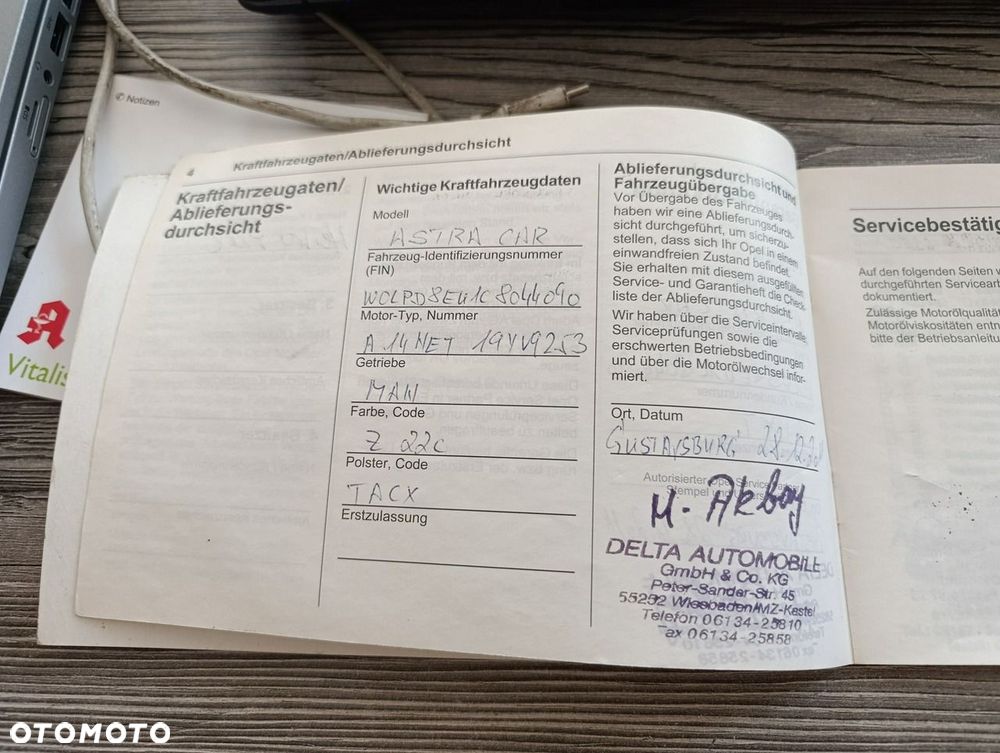 ✆ Notizen
Vitalis
4
Kraftfahrzeugaten/Ablieferungsdurchsicht
Kraftfahrzeugaten/
Ablieferungs-
durchsicht
Wichtige Kraftfahrzeugdaten
Modell
ASTRA CAR
Fahrzeug-Identifizierungsnummer
(FIN)
WOLPD8EU1C8044090
Motor-Typ, Nummer
A14NET 19YV9253
Getriebe
MAN
Farbe, Code
Z 22C
Polster, Code
TACX
Erstzulassung
Ablieferungsdurchsicht und
Fahrzeugübergabe
Vor Übergabe des Fahrzeuges
haben wir eine Ablieferungsdurch-
sicht durchgeführt, um sicherzu-
stellen, dass sich Ihr Opel in einem
einwandfreien Zustand befindet.
Sie erhalten mit diesem ausgefüllten
Service- und Garantieheft die Check-
liste der Ablieferungsdurchsicht.
Wir haben über die Serviceintervalle,
Serviceprüfungen sowie die
erschwerten Betriebsbedingungen
und über die Motorölwechsel infor-
miert.
Ort, Datum
GUSTAVSBURG 28.12.20
Autorisierter Opel Service
Stempel und
M. Akbay
DELTA AUTOMOBILE
GmbH & Co. KG
Peter-Sander-Str. 45
55252 Wiesbaden/MZ-Kastel
Telefon 06134-25810
Fax 06134-25858
Servicebestätig
Auf den folgenden Seiten w
durchgeführten Serviceart
dokumentiert.
Zulässige Motorölqualität
Motorölviskositäten entn
bitte der Betriebsanleitu
OTOMOTO